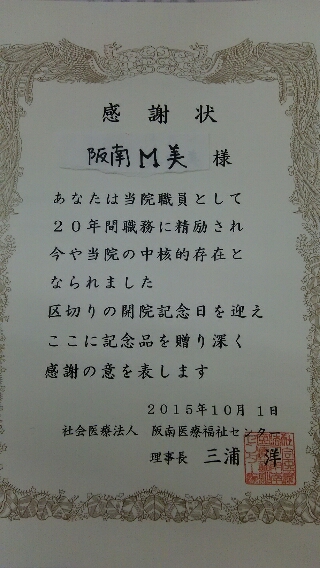 感謝状
阪南M美 様
あなたは当院職員として
20年間職務に精励され
今や当院の中核的存在と
なられました
区切りの開院記念日を迎え
ここに記念品を贈り深く
感謝の意を表します
2015年10月1日
社会医療法人 阪南医療福祉センター
理事長 三浦 洋